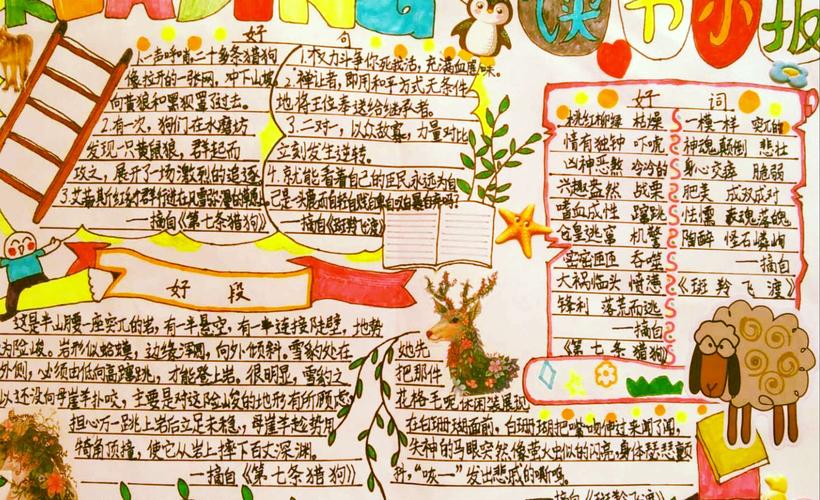 READING
读书小报
好 句
1.一声呼哨,二十多条猎狗
像拉开的一张网,冲下山坡
向黄狼和黑狈罩过去。
2.有一次,狗们在水磨坊
发现一只黄鼠狼,群起而
攻之,展开了一场激烈的追逐
——摘自《第七条猎狗》
1.权力斗争你死我活,充满血腥味。
2.禅让者,即用和平方式无条件
地将王位奉送给继承者。
3.二对一,以众敌寡,力量对比
立刻发生逆转。
4.就能看着自己的臣民永远为自
——摘自《斑羚飞渡》
好 词
桃红柳绿 枯燥
情有独钟 吓唬
凶神恶煞 冷冷的
兴趣盎然 战栗
嗜血成性 蹿跳
仓皇逃窜 机警
吞噬
大祸临头
锋利 落荒而逃
——摘自
《第七条猎狗》
一模一样
神魂颠倒 悲壮
身心交瘁 脆弱
肥美 成双成对
怯懦 丧魂落魄
陶醉 怪石嶙峋
——摘自
《斑羚飞渡》
好 段
这是半山腰一座突兀的岩,有一半悬空,有一半连接陡壁,地势
为险峻。岩形似蛤蟆,边缘浑圆,向外倾斜。雪豹处在
外侧,必须由低向高蹿跳,才能登上岩。很明显,雪豹之
以还没向母崖羊扑咬,主要是对这险峻的地形有所顾虑
担心万一跳上岩后立足未稳,母崖羊趁势用
犄角顶撞,使它从岩上摔下百丈深渊。
——摘自《第七条猎狗》
她先
把那件
花格子呢休闲装展现
在白珊珊面前,白珊珊把嘴吻伸过来闻了闻,
失神的马眼突然像萤火虫似的闪亮,身体瑟瑟颤
抖,“咴——”发出悲戚的嘶鸣。
——摘自《斑羚飞渡》